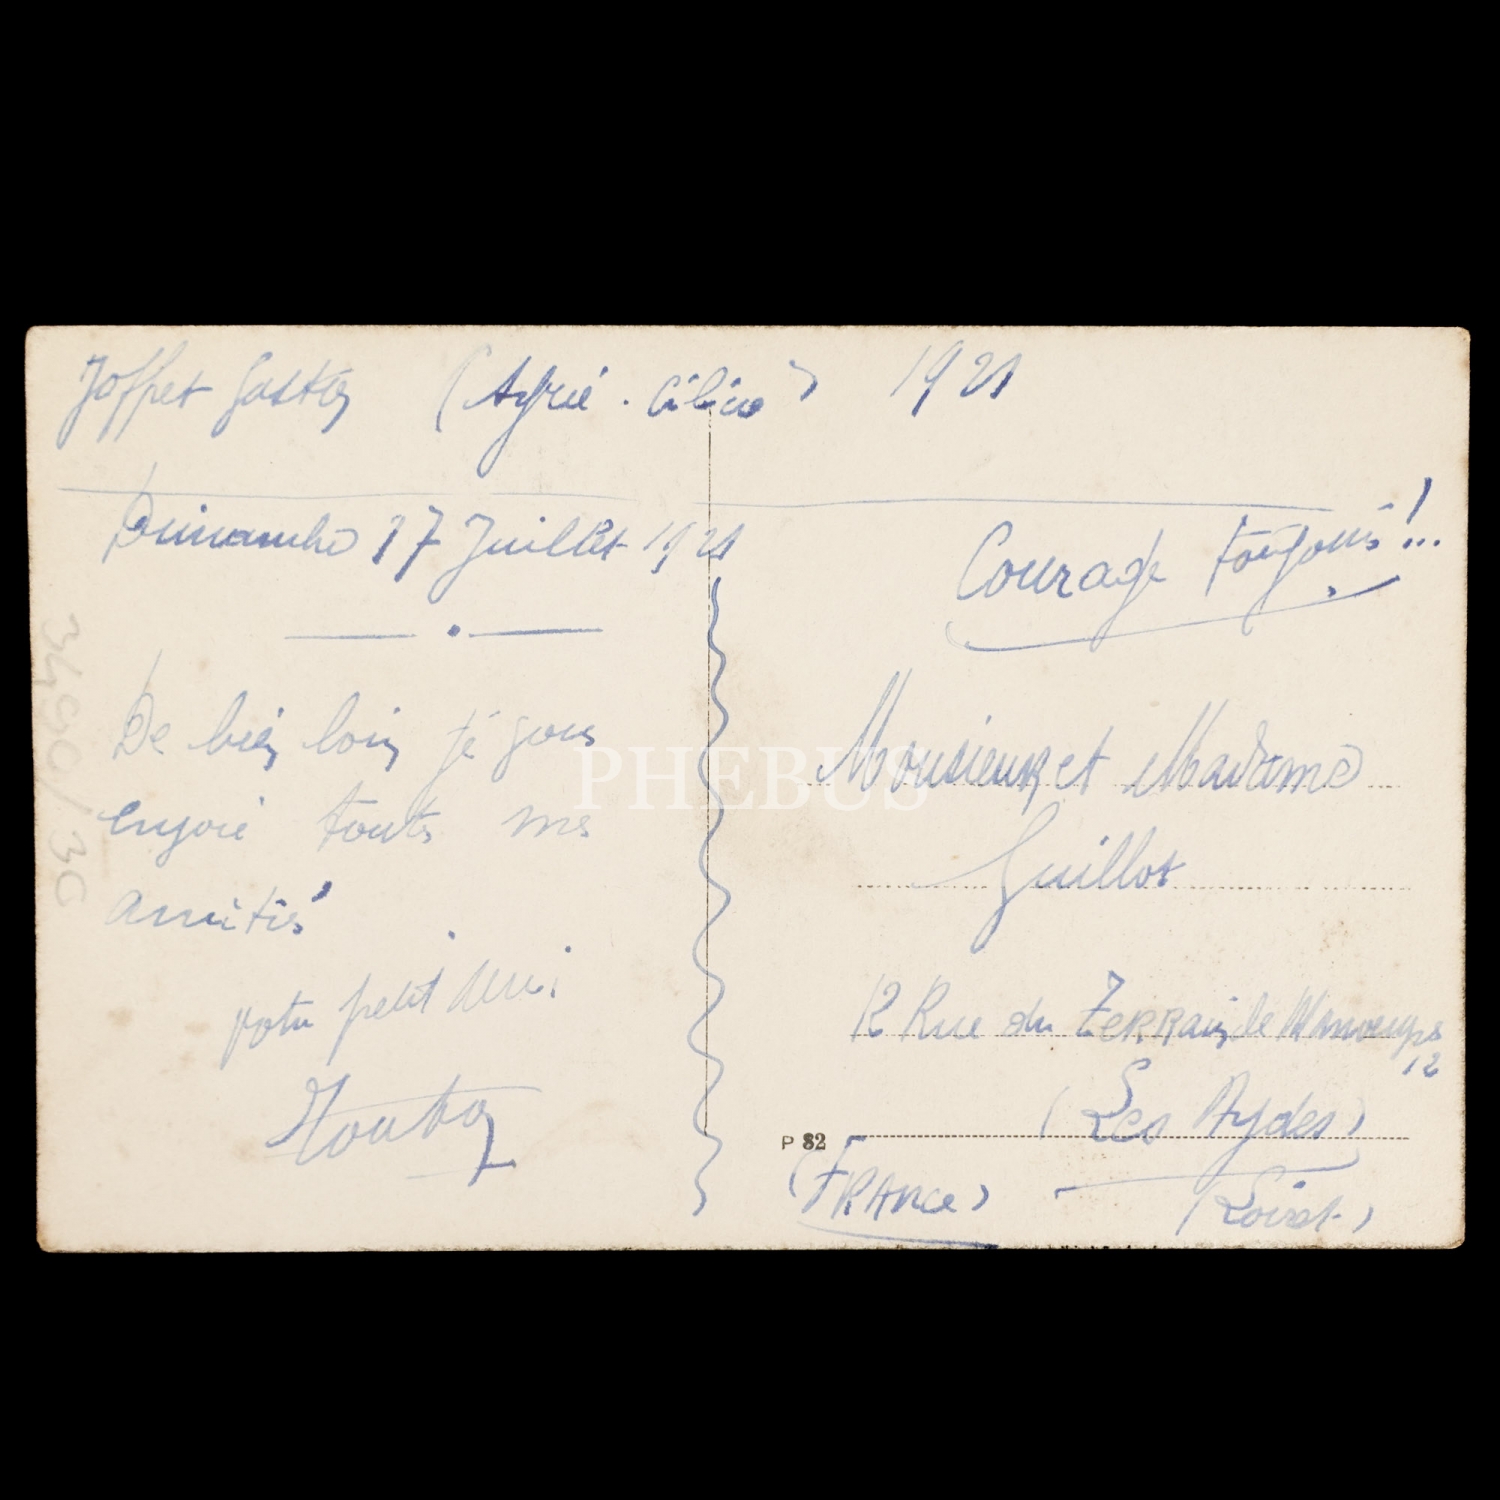 Joffret Gaston (Syrie. Cilicie) 1921
Dimanche 17 Juillet 1921
De bien loin je vous
envoie touts mes
amitiés
votre petit Ami
Toutou
Courage toujours!...
Monsieur et Madame
Guillot
12 Rue du Terrain de Manoeuvres
12
(Les Aydes)
(Loiret)
(FRANCE)
P 82
3490/30
PHEBUS